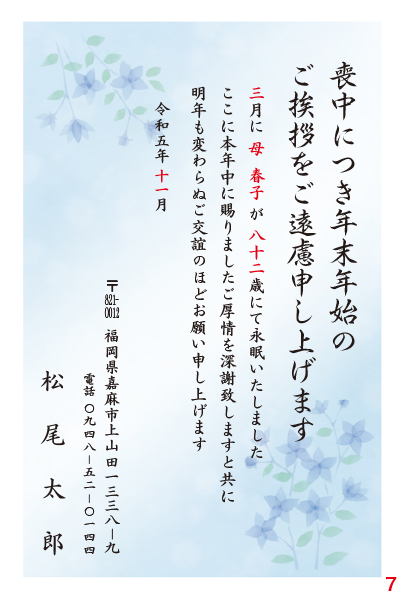 喪中につき年末年始の
ご挨拶をご遠慮申し上げます
三月に 母 春子 が 八十二歳にて永眠いたしました
ここに本年中に賜りましたご厚情を深謝致しますと共に
明年も変わらぬご交誼のほどお願い申し上げます
令和五年 十一月
〒821-0012 福岡県嘉麻市上山田一三三八ー九
電話 〇九四八ー五二ー〇一四四
松尾太郎
7